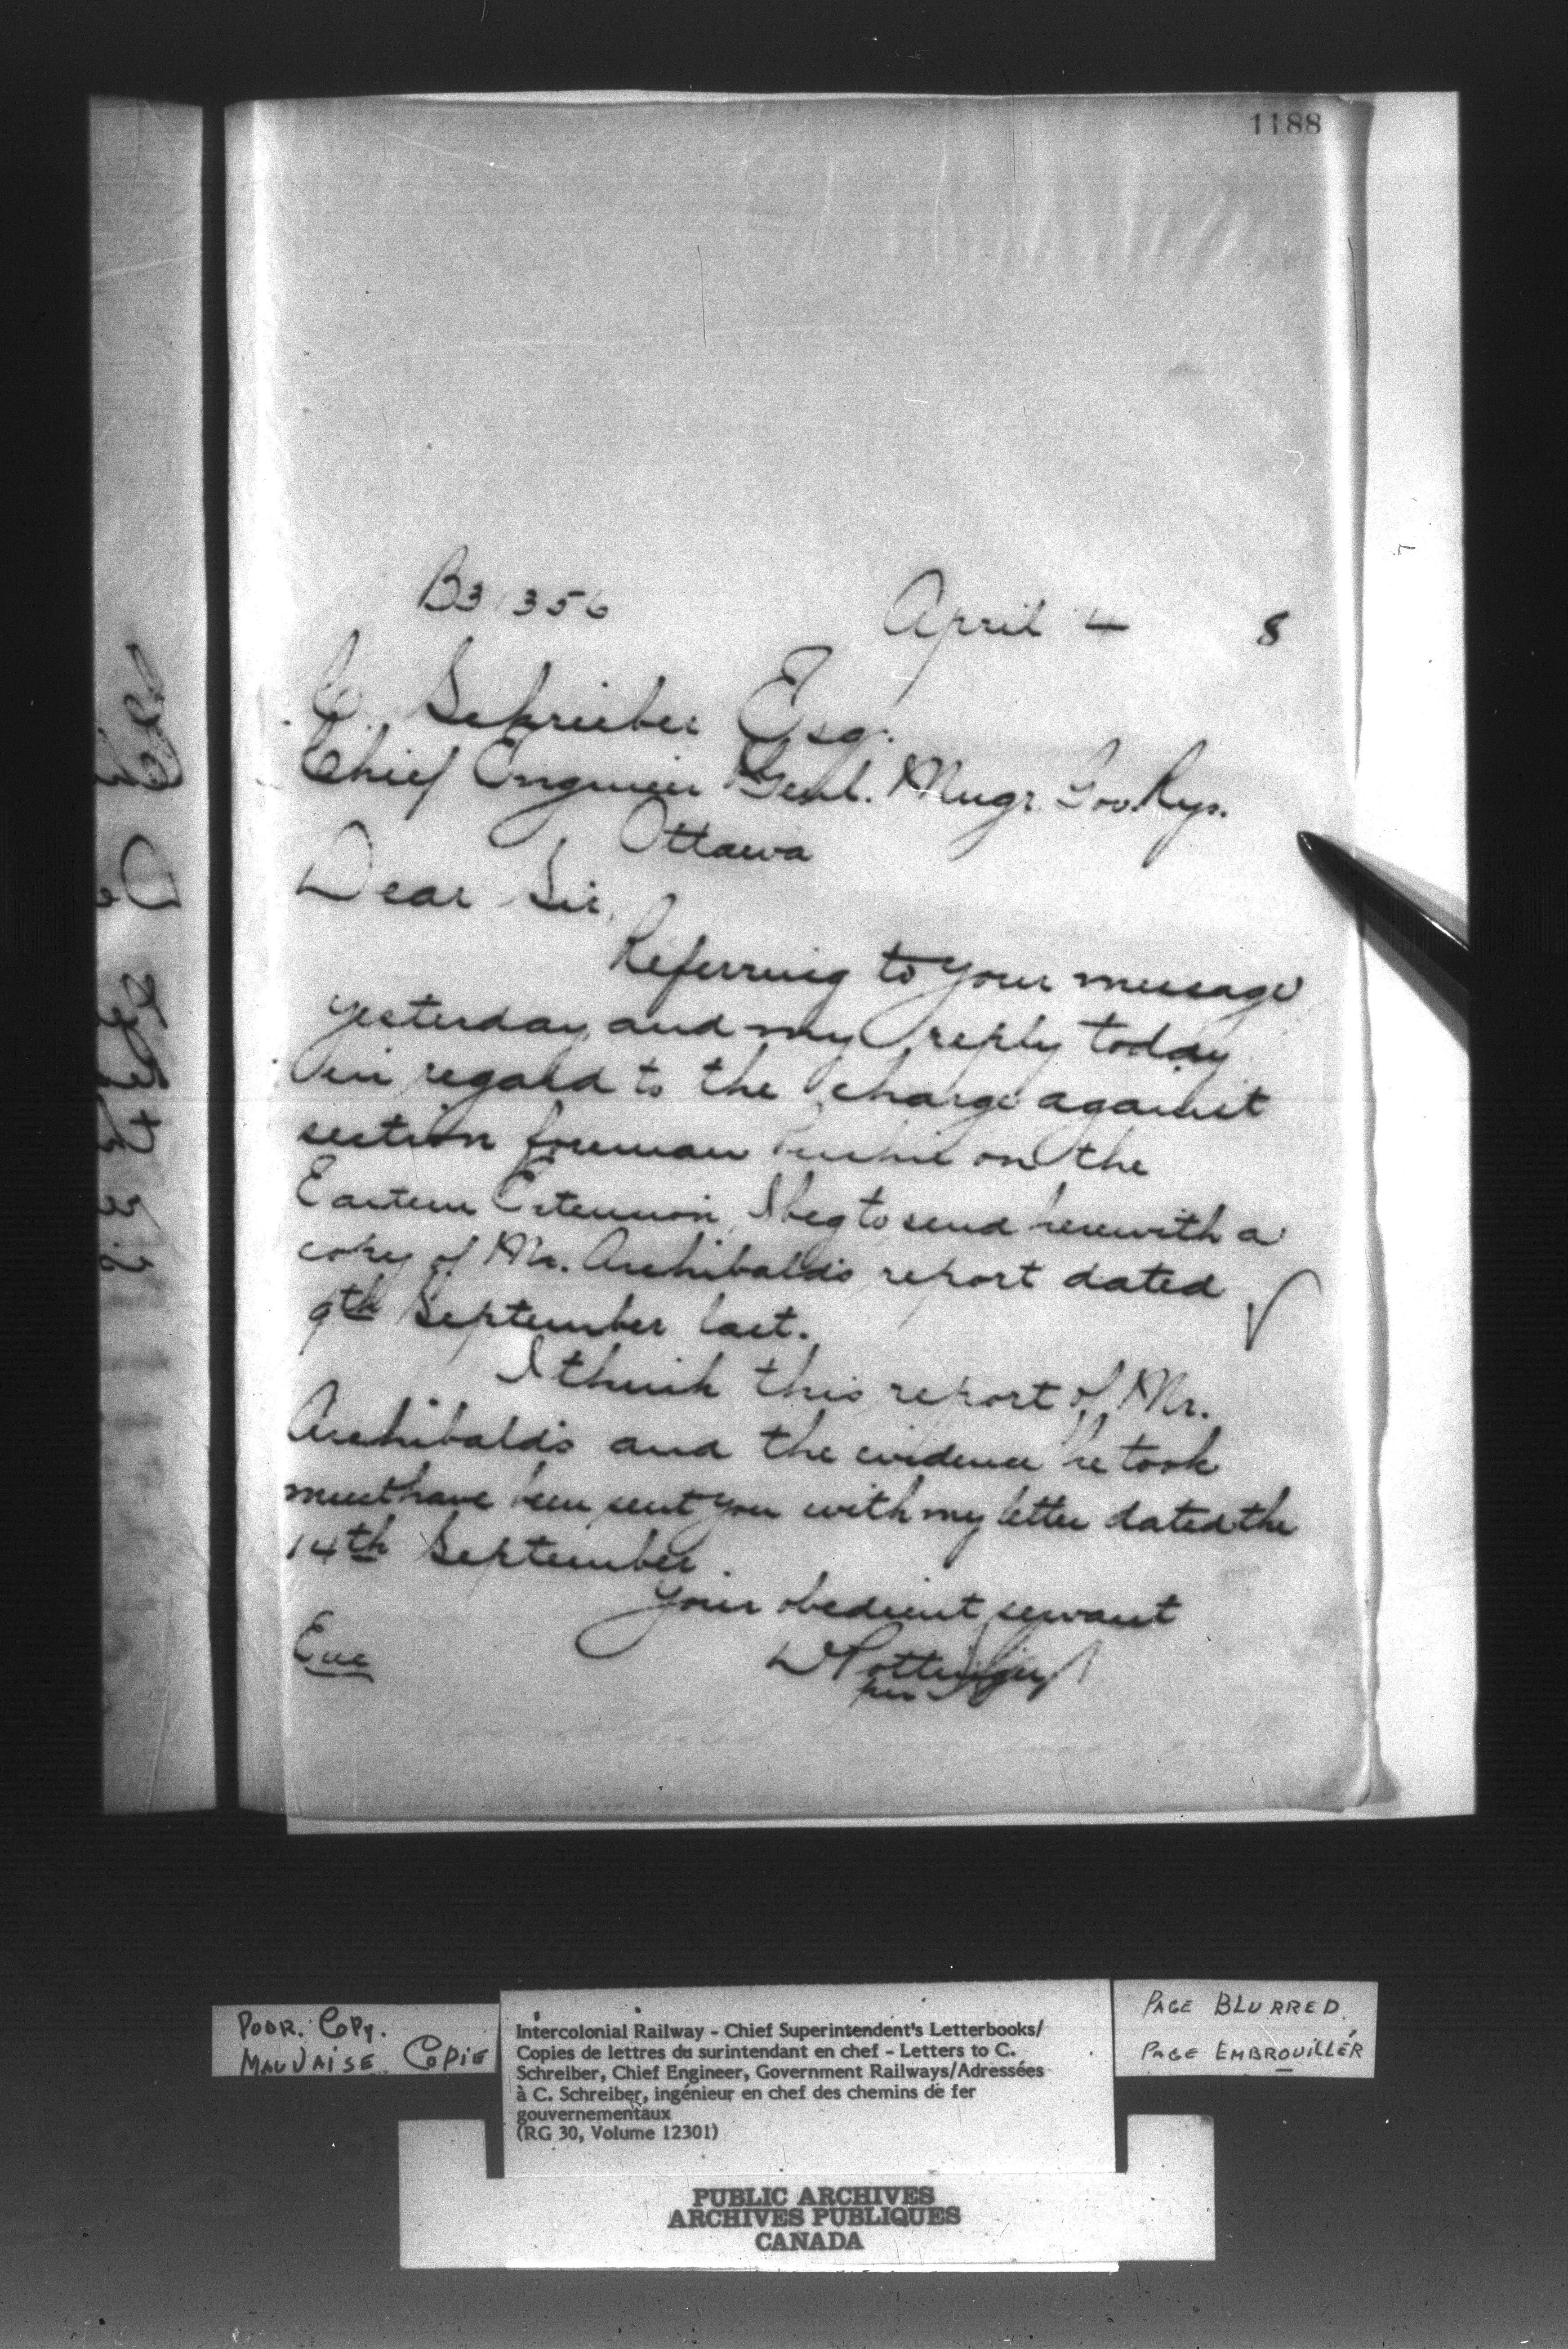 1188
B31356
April 4 8
C. Schrieber Esq.
Chief Engineer Genl. Mngr. Gov. Rys.
Ottawa
Dear Sir,
Referring to your message
yesterday and my reply today
in regard to the charge against
section foreman on the
Eastern Extension, I beg to send herewith a
copy of Mr. Archibald's report dated
9th September last.
I think this report of Mr.
Archibald's and the evidence he took
must have been sent you with my letter dated the
14th September.
Your obedient servant
D Pottinger
per
Enc
POOR. COPY.
MAUVAISE COPIE
Intercolonial Railway - Chief Superintendent's Letterbooks/
Copies de lettres du surintendant en chef - Letters to C.
Schreiber, Chief Engineer, Government Railways/Adressées
à C. Schreiber, ingénieur en chef des chemins de fer
gouvernementaux
(RG 30, Volume 12301)
PAGE BLURRED
PAGE EMBROUILLÉR
PUBLIC ARCHIVES
ARCHIVES PUBLIQUES
CANADA